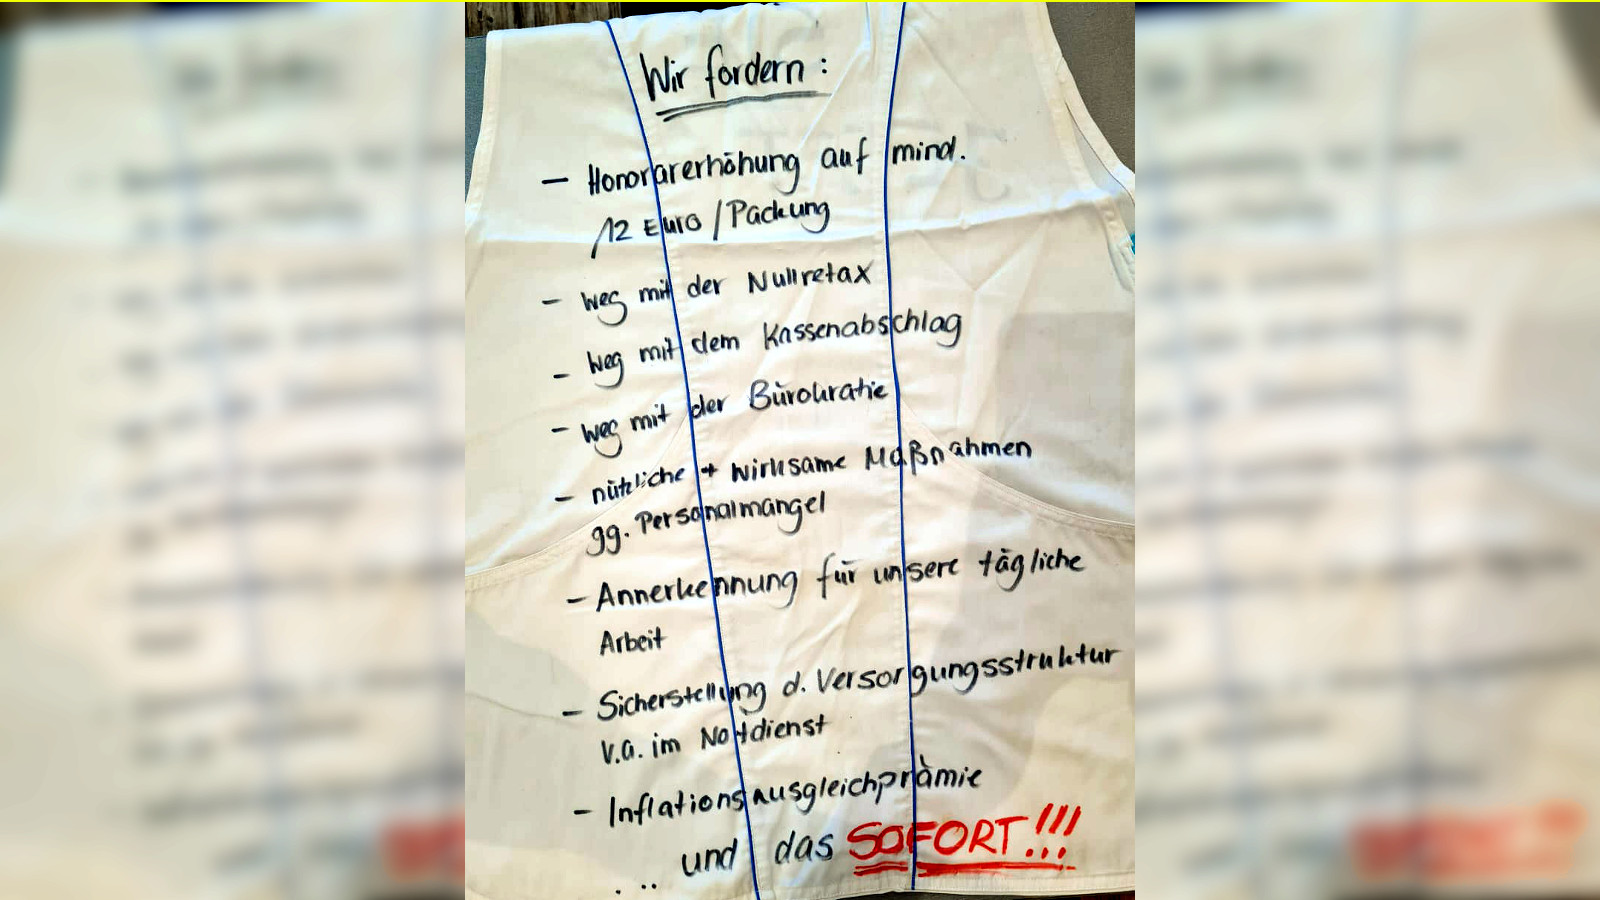 Wir fordern:
– Honorarerhöhung auf mind.
12 Euro / Packung
– weg mit der Nullretax
– weg mit dem Kassenabschlag
– weg mit der Bürokratie
– nützliche + wirksame Maßnahmen
gg. Personalmangel
– Annerkennung für unsere tägliche
Arbeit
– Sicherstellung d. Versorgungsstruktur
v.a. im Notdienst
– Inflationsausgleichprämie
... und das SOFORT!!!